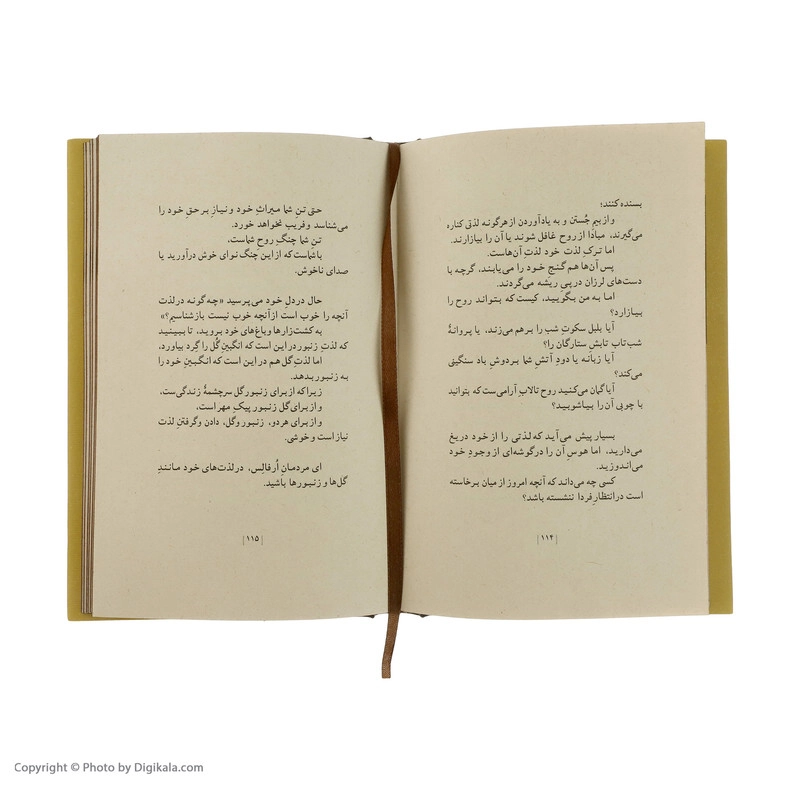 بسنده کنند؛
و از بیم جُستن و به یاد آوردن از هرگونه لذتی کناره
می‌گیرند، مبادا از روح غافل شوند یا آن را بیازارند.
اما ترکِ لذت خود لذتِ آن‌هاست.
پس آن‌ها هم گنجِ خود را می‌یابند، گرچه با
دست‌های لرزان در پیِ ریشه می‌گردند.
اما به من بگویید، کیست که بتواند روح را
بیازارد؟
آیا بلبل سکوتِ شب را برهم می‌زند، یا پروانهٔ
شب‌تاب تابشِ ستارگان را؟
آیا زبانه یا دودِ آتشِ شما بر دوشِ باد سنگینی
می‌کند؟
آیا گمان می‌کنید روح تالابِ آرامی‌ست که بتوانید
با چوبی آن را بیاشوبید؟
بسیار پیش می‌آید که لذتی را از خود دریغ
می‌دارید، اما هوسِ آن را در گوشه‌ای از وجودِ خود
می‌اندوزید.
کسی چه می‌داند که آنچه امروز از میان برخاسته
است در انتظارِ فردا ننشسته باشد؟
[۱۱۴]
حتی تنِ شما میراثِ خود و نیازِ برحقِ خود را
می‌شناسد و فریب نخواهد خورد.
تنِ شما چنگِ روحِ شماست،
با شماست که از این چنگ نوای خوش درآورید یا
صدای ناخوش.
حال در دلِ خود می‌پرسید «چه‌گونه در لذت
آنچه را خوب است از آنچه خوب نیست بازشناسیم؟»
به کشت‌زارها و باغ‌های خود بروید، تا ببینید
که لذتِ زنبور در این است که انگبینِ گُل را گِرد بیاورد،
اما لذتِ گل هم در این است که انگبینِ خود را
به زنبور بدهد.
زیرا که از برای زنبور گل سرچشمهٔ زندگی‌ست،
و از برای گل زنبور پیکِ مهر است،
و از برای هر دو، زنبور و گل، دادن و گرفتنِ لذت
نیاز است و خوشی.
ای مردمانِ اُرفالِس، در لذت‌های خود مانندِ
گل‌ها و زنبورها باشید.
[۱۱۵]
Copyright © Photo by Digikala.com